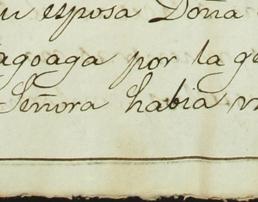 su esposa Doña
agoaga por la ge
Señora habia vi